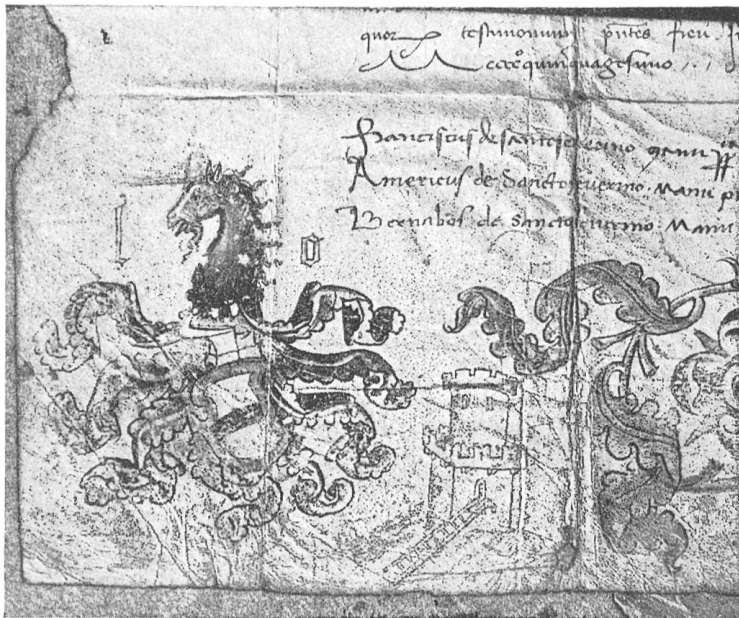 quor testimonium pntes fieri
Mcccc°quinquagesimo
Franciscus de sanctoseverino manu
Americus de Sanctoseverino. Manu
Bernabos de Sanctoseverino. Manu